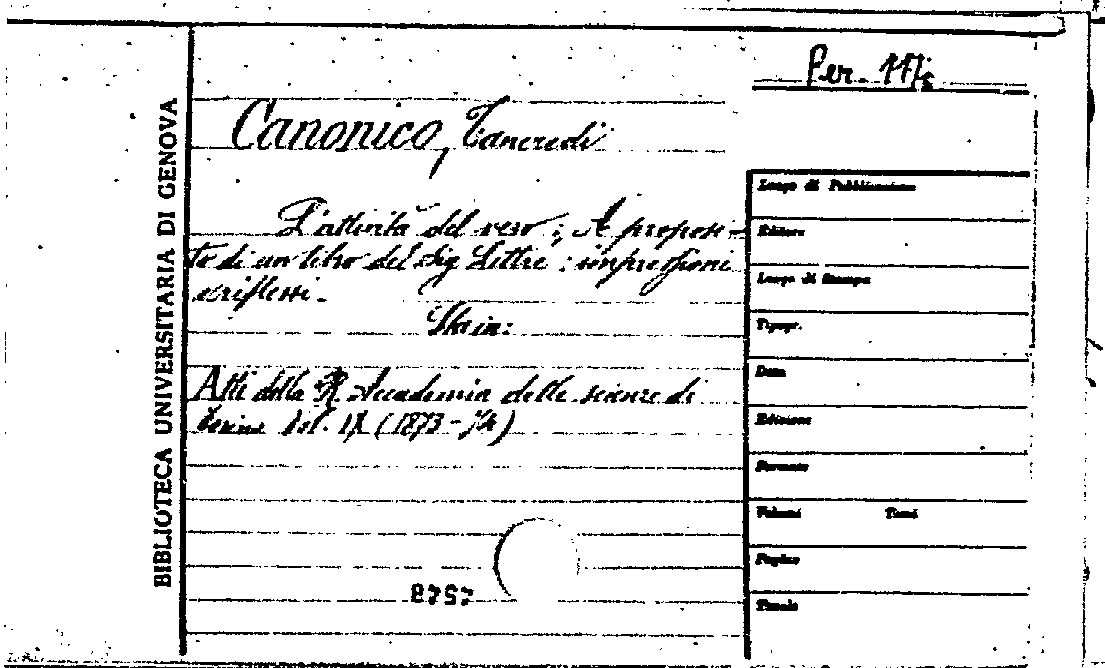 Per. 11/5
Canonico, Tancredi
L'attività del vero; A proposi-
to di un libro del Sig Littré: impressioni
e riflessi.
Sta in:
Atti della R. Accademia delle scienze di
Torino Vol. IX (1873-74)
BIBLIOTECA UNIVERSITARIA DI GENOVA
Luogo di Pubblicazione
Editore
Luogo di Stampa
Tipogr.
Data
Edizione
Formato
Volumi Tomi
Pagine
Tavole